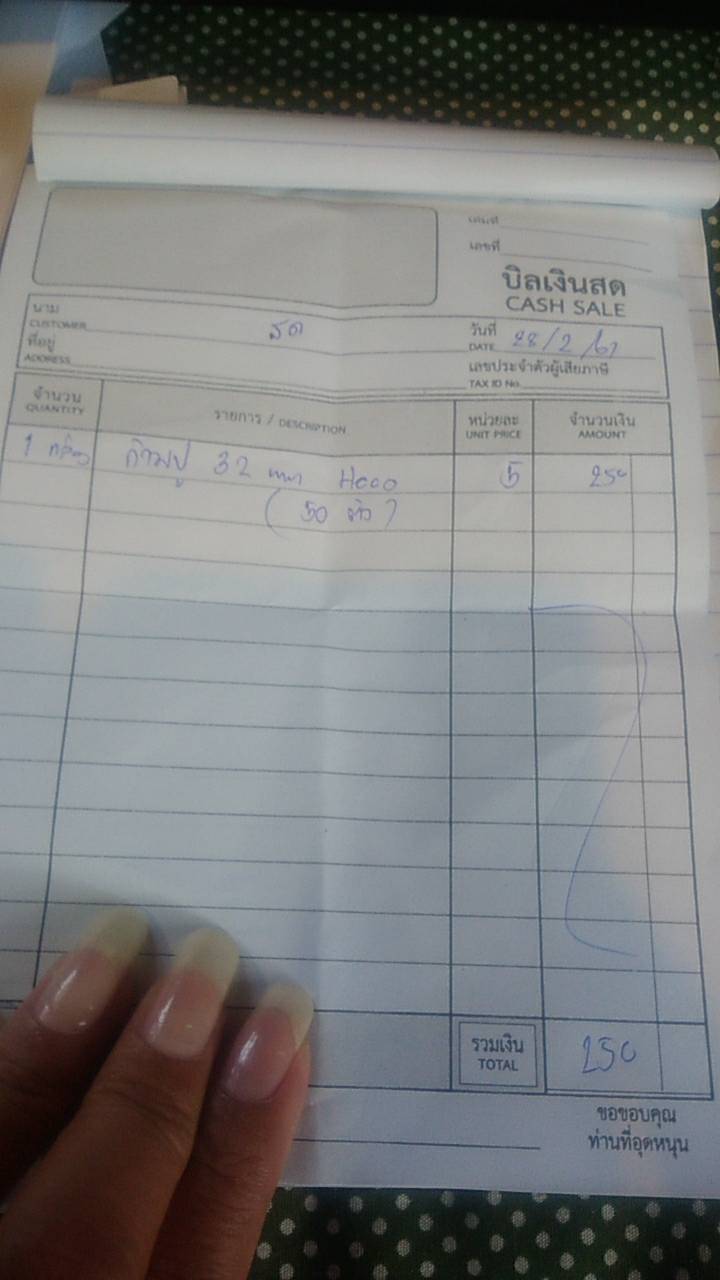 เล่มที่
เลขที่
บิลเงินสด
CASH SALE
นาม
CUSTOMER
สด
วันที่
DATE 28/2/61
ที่อยู่
ADDRESS
เลขประจำตัวผู้เสียภาษี
TAX ID No.
จำนวน
QUANTITY
รายการ / DESCRIPTION
หน่วยละ
UNIT PRICE
จำนวนเงิน
AMOUNT
1 กล่อง ก้ามปู 32 มม 5 250
(50 ตัว)
รวมเงิน
TOTAL
250
ขอขอบคุณ
ท่านที่อุดหนุน